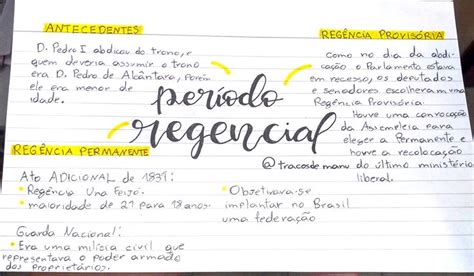 ANTECEDENTES
D. Pedro I abdicou do trono, e
quem deveria assumir o trono
era D. Pedro de Alcântara, porém
ele era menor de
idade.
REGÊNCIA PROVISÓRIA
como no dia da abdi-
cação o Parlamento estava
em recesso, os deputados
e senadores escolheram uma
Regência Provisória.
Houve uma convocação
da Assembleia para
eleger a Permanente e
horve a recolocação
do último ministério
liberal.
período
regencial
@tracosdemanu
REGÊNCIA PERMANENTE
Ato ADICIONAL de 1831:
• Regência Una Feijó.
• maioridade de 21 para 18 anos.
• Objetivava-se
implantar no Brasil
uma federação
Guarda Nacional:
• Era uma milícia civil que
representava o poder armado
dos proprietários.